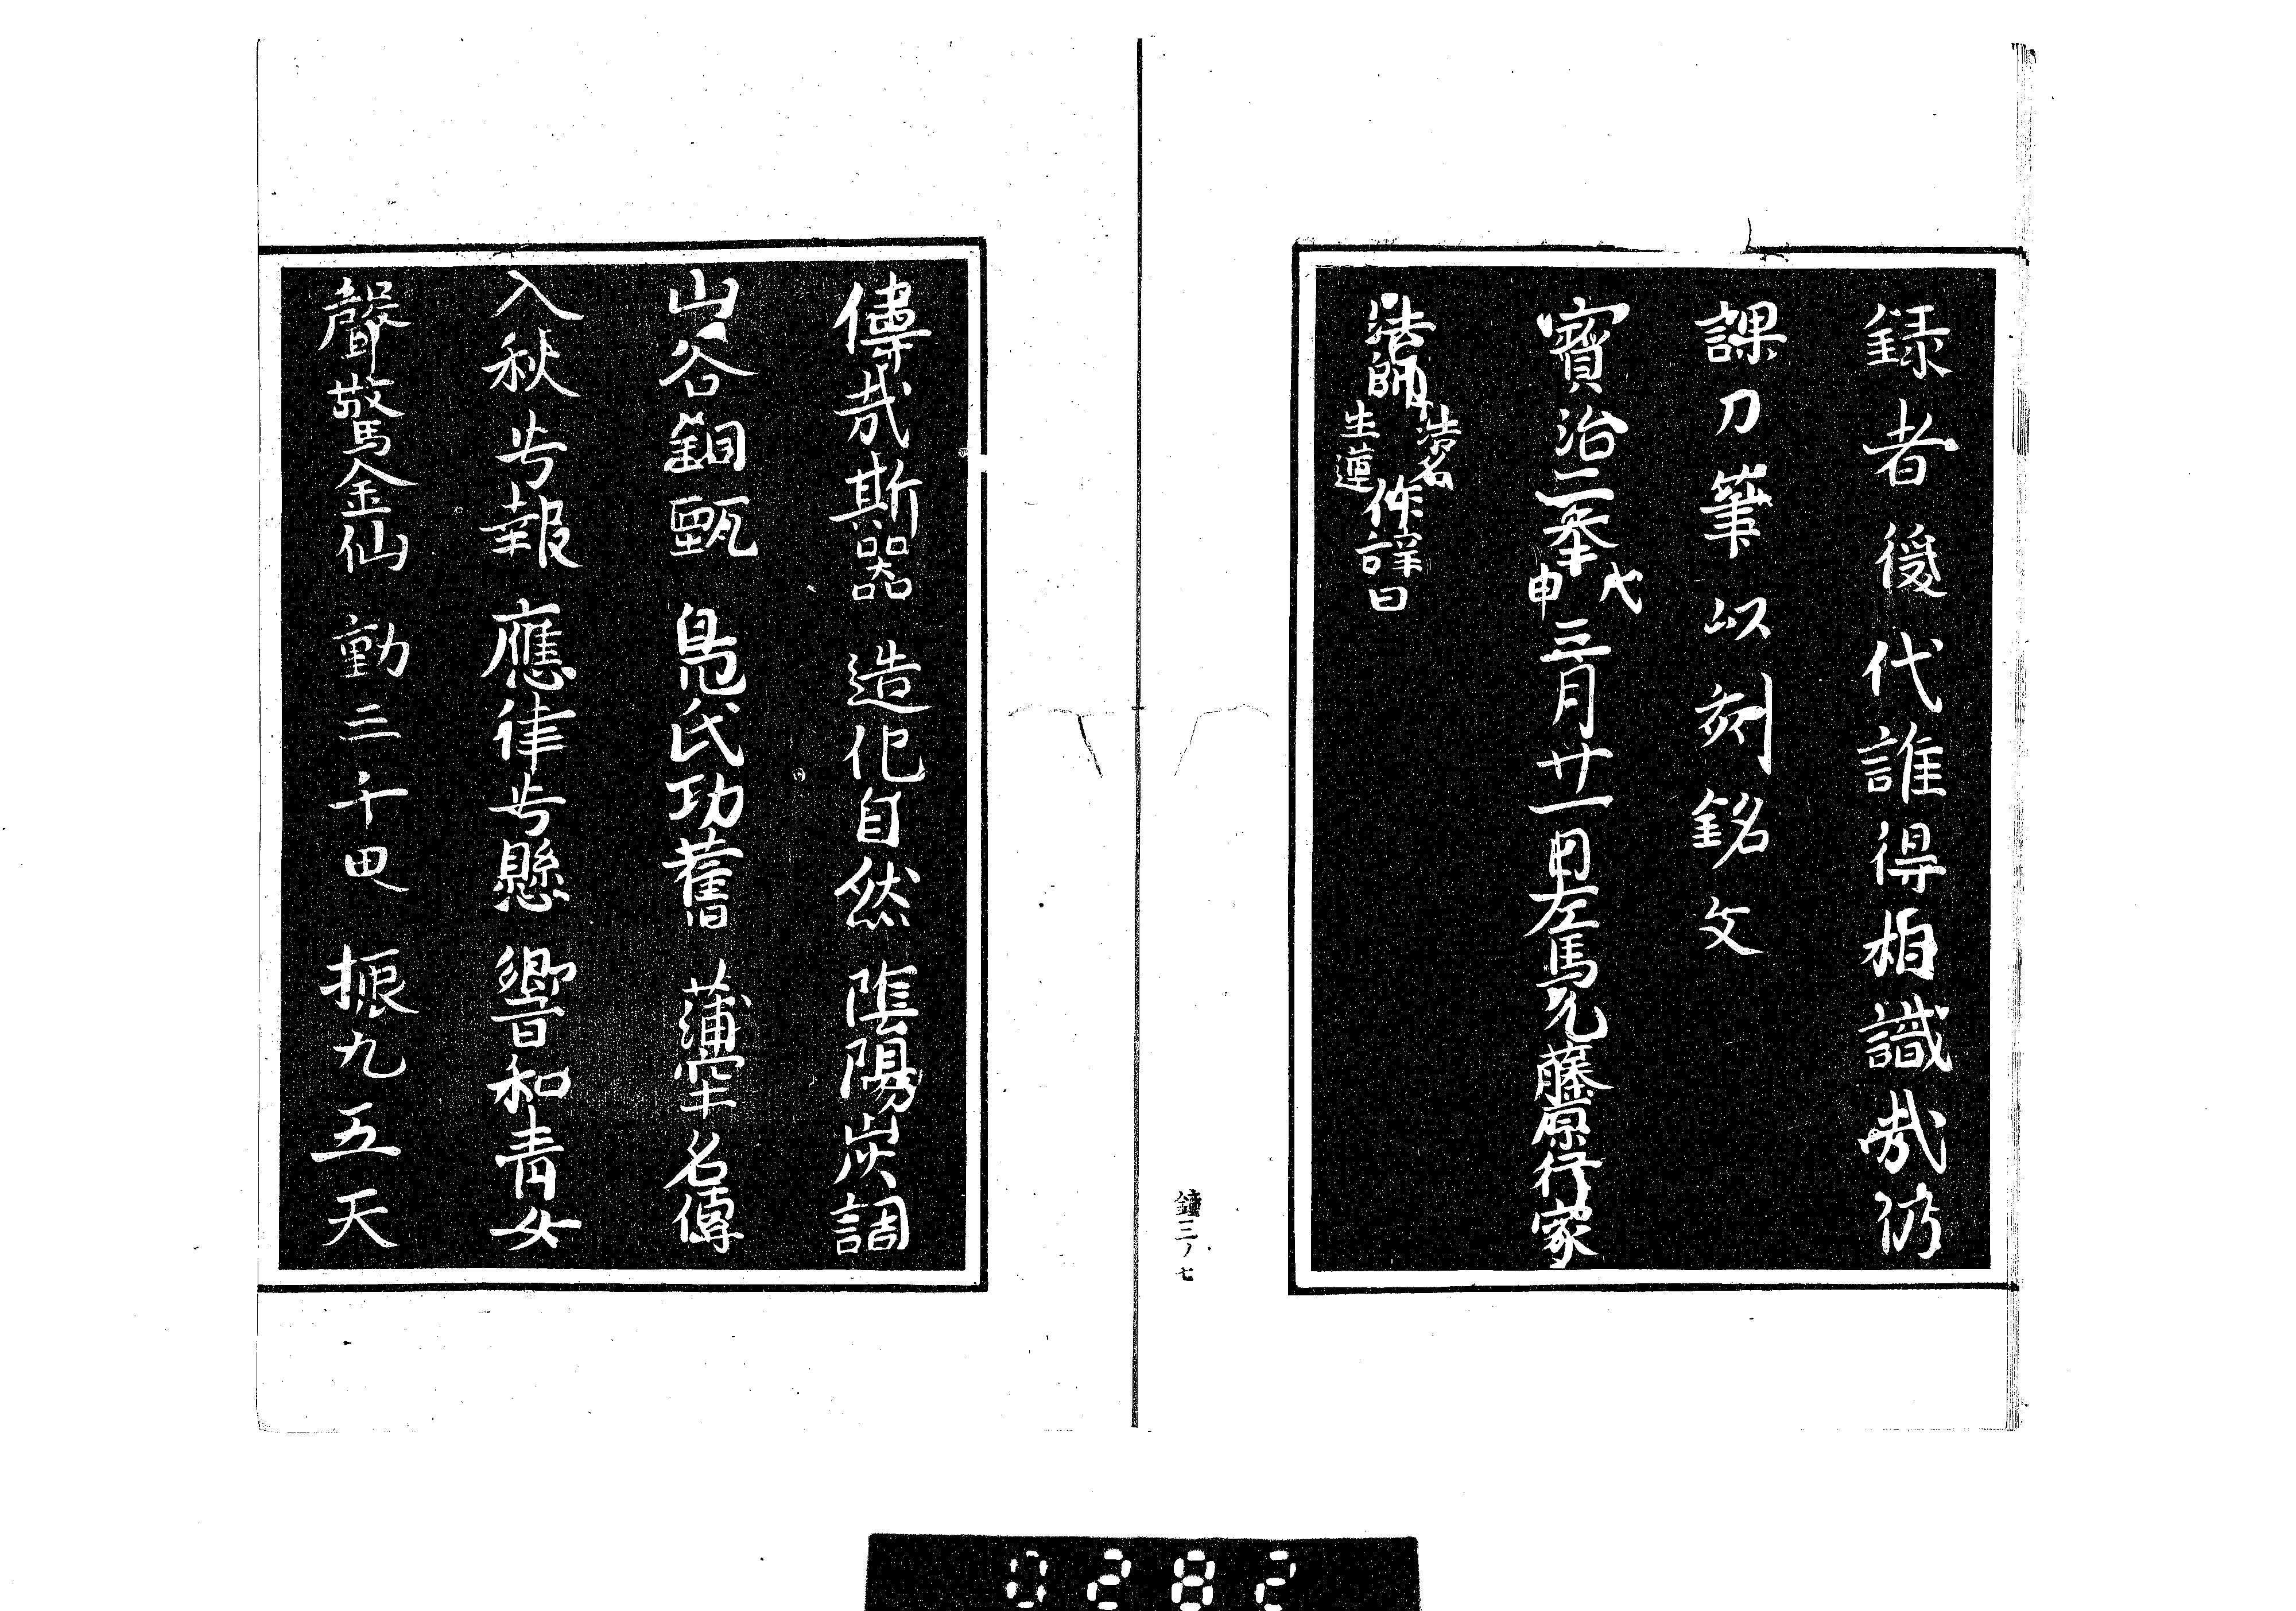 録者後代誰得相識哉仍
課刀筆以刻銘文
寳治二年戊申三月廿一日左馬允藤原行家
法師法名生蓮作詳曰
偉哉斯器 造化自然 陰陽炭調
山谷銅甄 鳧氏功舊 蒲牢名傳
入秋兮報 應律兮懸 響和青女
聲驚金仙 動三千界 振九五天
鐘三ノ七
0282